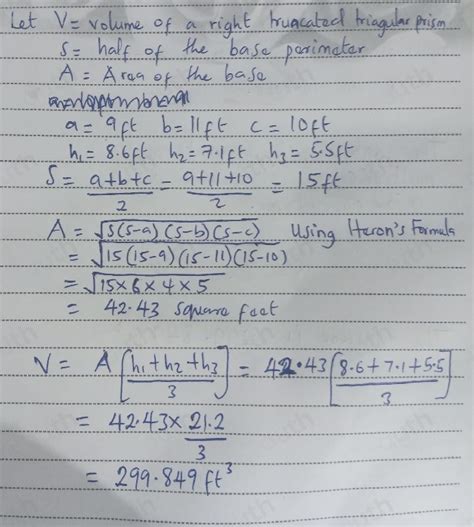 Let V = volume of a right truncated triagular prism
S = half of the base perimeter
A = Area of the base
a = 9ft b = 11ft c = 10ft
h₁ = 8.6ft h₂ = 7.1ft h₃ = 5.5ft
S = (a+b+c)/2 = (9+11+10)/2 = 15ft
A = √(S(S-a)(S-b)(S-c)) Using Heron's Formula
= √(15(15-9)(15-11)(15-10))
= √(15×6×4×5)
= 42.43 square feet
V = A[(h₁+h₂+h₃)/3] = 42.43[(8.6+7.1+5.5)/3]
= 42.43 × 21.2/3
= 299.849 ft³